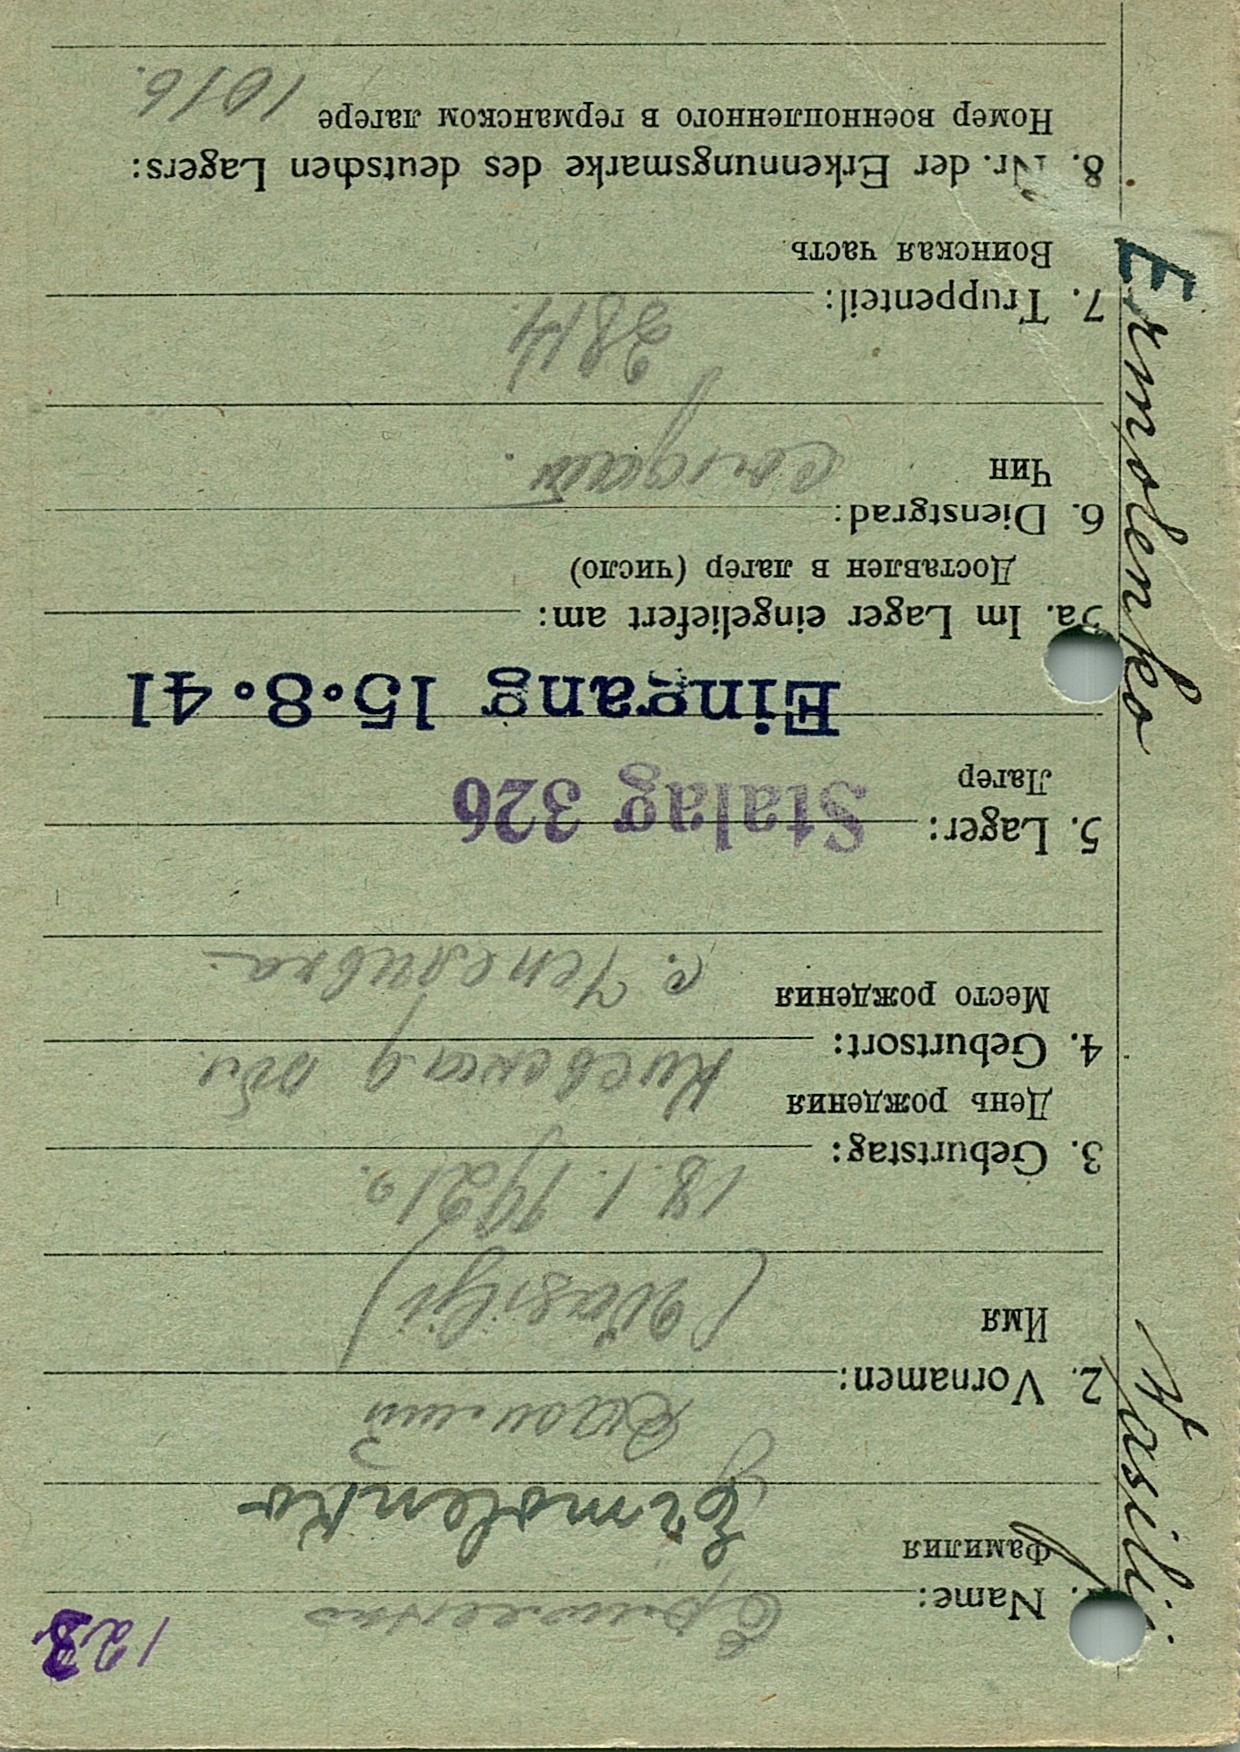 123
1. Name: Ермоленко
Фамилия Ermolenko
2. Vornamen: Василий
Имя (Wasilji)
3. Geburtstag: 18.1.1921 г.
День рождения
Киевская обл.
4. Geburtsort:
Место рождения
с. Чепелиевка
5. Lager: Stalag 326
Лагер
Eingang 15.8.41
5a. Im Lager eingeliefert am:
Доставлен в лагер (число)
6. Dienstgrad:
Чин солдат.
7. Truppenteil: 3814
Воинская часть
8. Nr. der Erkennungsmarke des deutschen Lagers:
Номер военнопленного в германском лагере 1016.
Wasilij Ermolenko